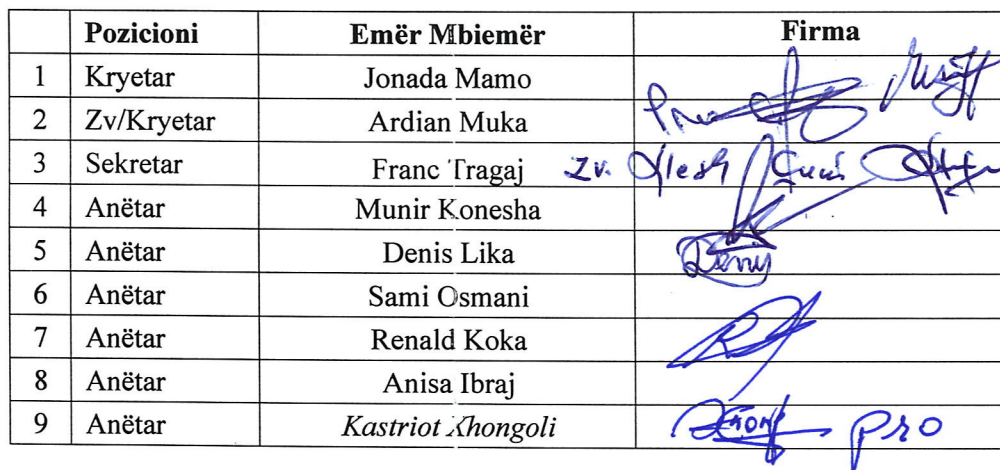 Pozicioni Emër Mbiemër Firma
1 Kryetar Jonada Mamo
2 Zv/Kryetar Ardian Muka
3 Sekretar Franc Tragaj Zv.
4 Anëtar Munir Konesha
5 Anëtar Denis Lika Denis
6 Anëtar Sami Osmani
7 Anëtar Renald Koka
8 Anëtar Anisa Ibraj
9 Anëtar Kastriot Xhongoli Pro